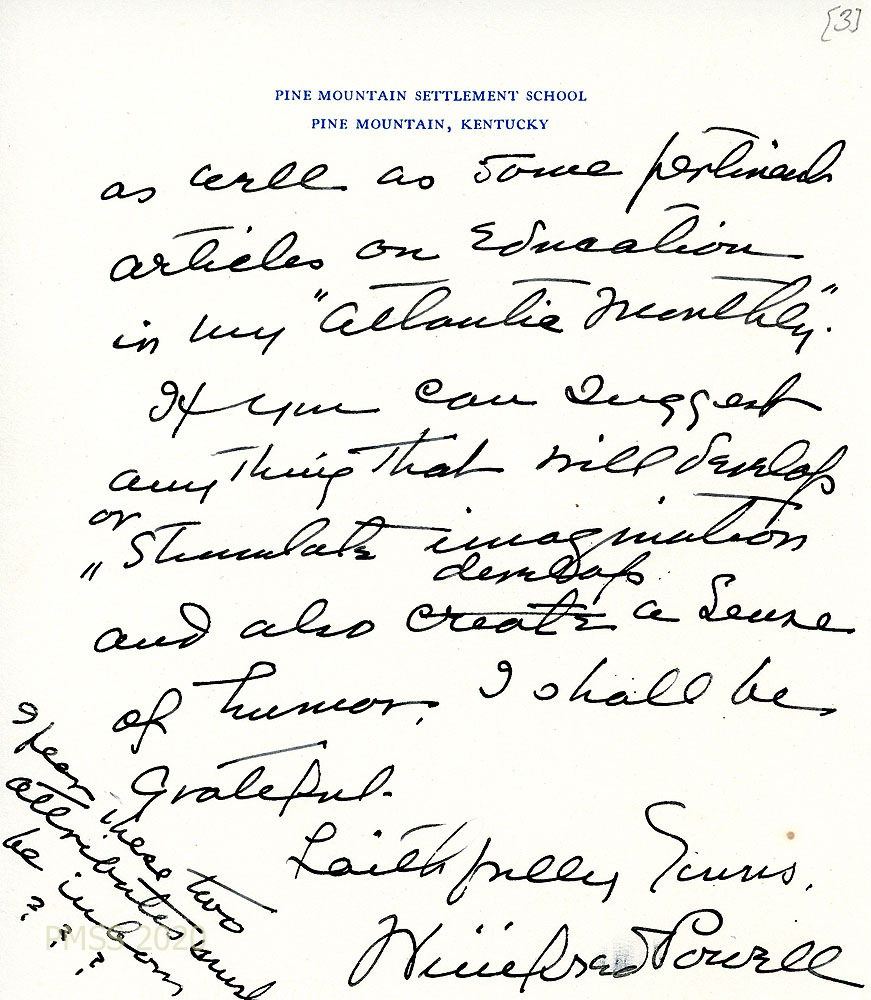 [3]
PINE MOUNTAIN SETTLEMENT SCHOOL
PINE MOUNTAIN, KENTUCKY
as well as some pertinent
articles on Education
in my "Atlantic Monthly".
If you can suggest
anything that will develop
or
" Stimulate imagination
develop
and also create a sense
of humor, I shall be
grateful.
Faithfully Yours,
Winifred Powell
I fear
these two
attributes must
be inborn
? ? ?
PMSS 2020